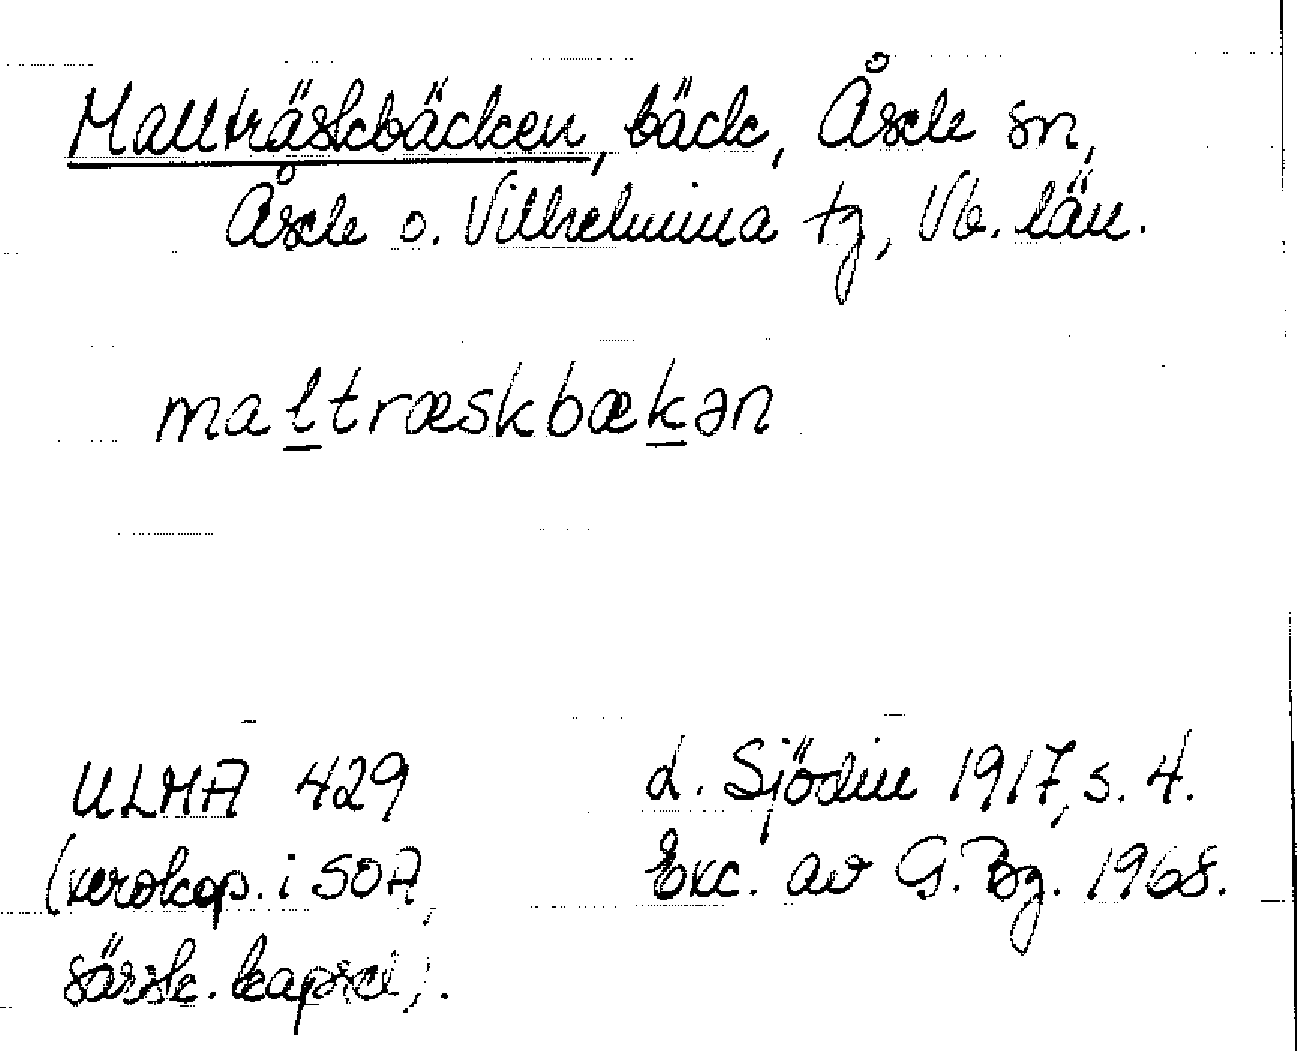 Mallträskbäcken, bäck, Åsele sn,
Åsele o. Vilhelmina tg, Vb. län.
maltræskbækən
ULMA 429
(xerokop. i SOA,
särsk. kapsel).
L. Sjödin 1917, s. 4.
Exc. av G. Bg. 1968.